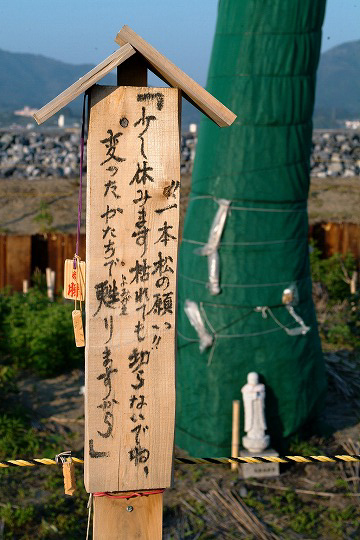 〝一本松の願い〟
「少し休みます枯れても切らないでね、
変ったかたちで甦りますから」